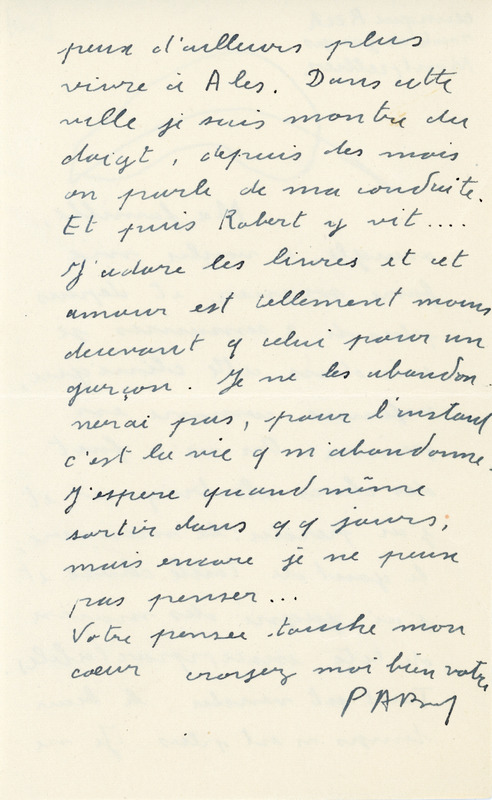 peux d'ailleurs plus
vivre à Ales. Dans cette
ville je suis montré du
doigt, depuis des mois
on parle de ma conduite.
Et puis Robert y vit....
J'adore les livres et cet
amour est tellement moins
decevant q celui pour un
garçon. Je ne les abandon-
nerai pas, pour l'instant
c'est la vie q m'abandonne.
J'espere quand même
sortir dans qq jours,
mais encore je ne peux
pas penser...
Votre pensée touche mon
cœur croyez moi bien votre